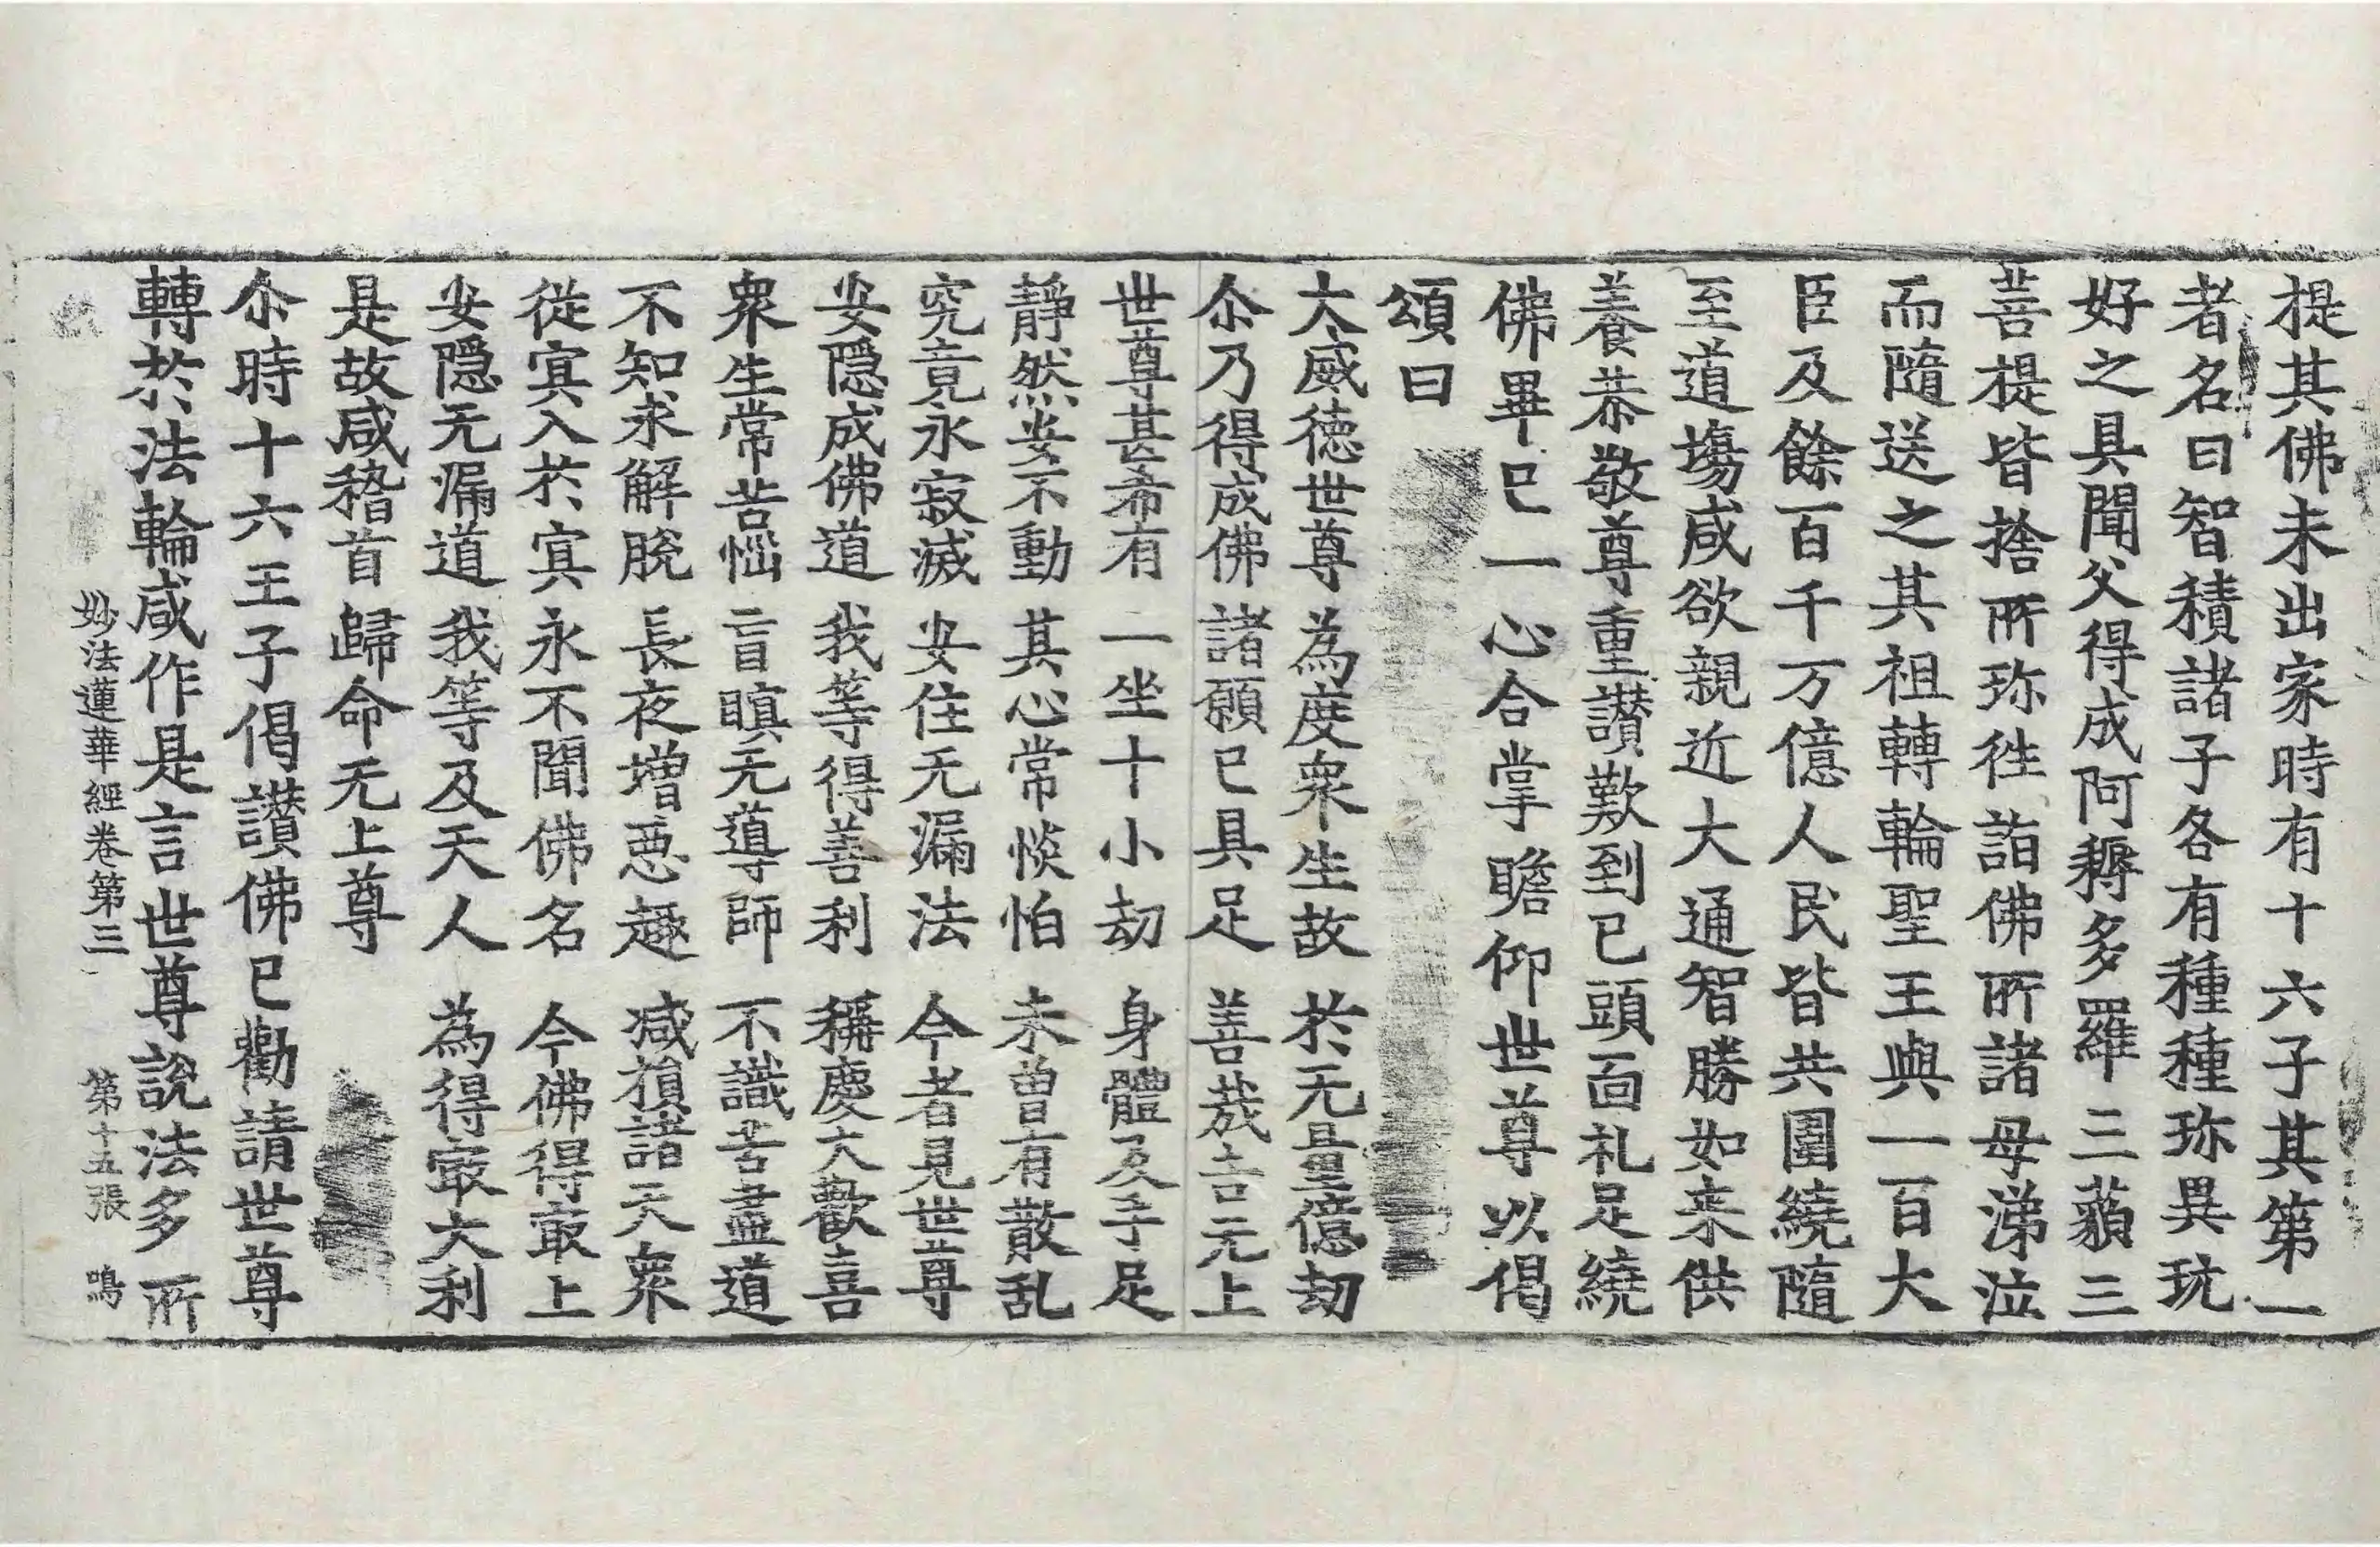 提其佛未出家時有十六子其第一
者名曰智積諸子各有種種珎異玩
好之具聞父得成阿耨多羅三藐三
菩提皆捨所珎徃詣佛所諸母涕泣
而隨送之其祖轉輪聖王與一百大
臣及餘百千万億人民皆共圍繞隨
至道塲咸欲親近大通智勝如来供
養恭敬尊重讃歎到已頭面礼足繞
佛畢已一心合掌瞻仰世尊以偈
頌曰
大威徳世尊 為度衆生故 於无量億劫
尒乃得成佛 諸願已具足 善哉吉无上
世尊甚希有 一坐十小劫 身體及手足
靜然安不動 其心常惔怕 未曽有散乱
究竟永寂滅 安住无漏法 今者見世尊
安隠成佛道 我等得善利 稱慶大歡喜
衆生常苦惱 盲瞑无導師 不識苦盡道
不知求解脫 長夜増惡趣 减損諸天衆
從冥入於冥 永不聞佛名 今佛得㝡上
安隠无漏道 我等及天人 為得㝡大利
是故咸稽首 歸命无上尊
尒時十六王子偈讃佛已勸請世尊
轉於法輪咸作是言世尊說法多所
妙法蓮華經卷第三 第十五張 鳴